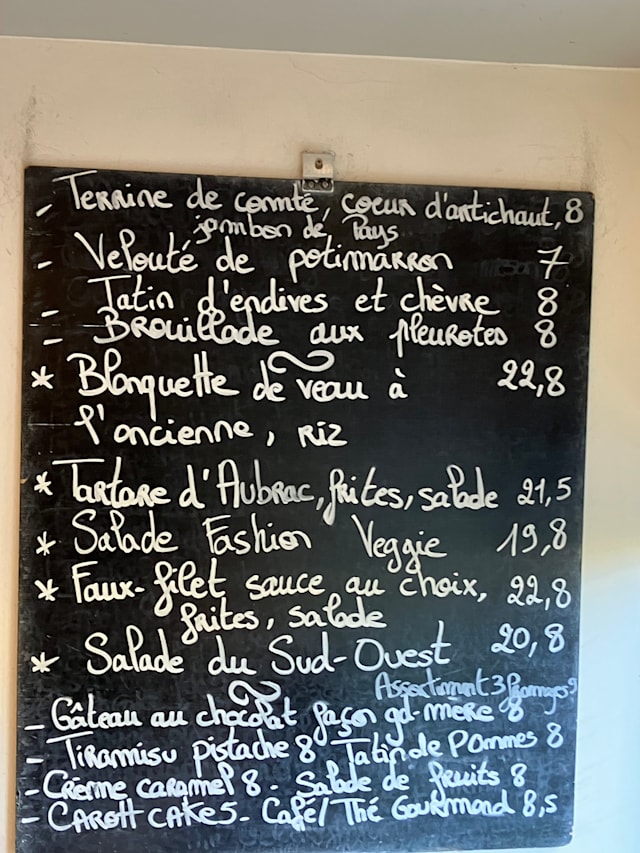 - Terrine de comté, coeur d'artichaut, 8
jambon de Pays
- Velouté de potimarron 7
- Tatin d'endives et chèvre 8
- Brouillade aux pleurotes 8
* Blanquette de veau à 22,8
l'ancienne, riz
* Tartare d'Aubrac, frites, salade 21,5
* Salade Fashion Veggie 19,8
* Faux-filet sauce au choix, 22,8
frites, salade
* Salade du Sud-Ouest 20,8
Assortiment 3 fromages 9
- Gâteau au chocolat façon gd-mère 8
- Tiramisu pistache 8 - Tatin de Pommes 8
- Crème caramel 8 - Salade de fruits 8
- Carott cake 5 - Café/Thé Gourmand 8,5